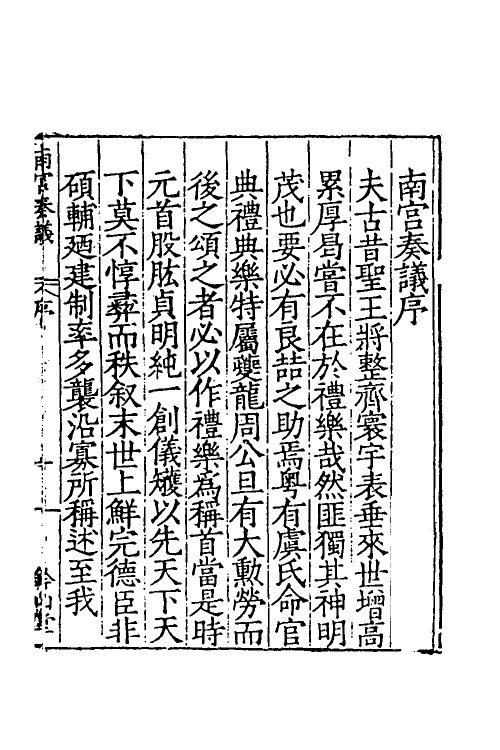 南宮奏議序
夫古昔聖王將整齊寰宇表垂來世增高
累厚曷嘗不在於禮樂哉然匪獨其神明
茂也要必有良喆之助焉粵有虞氏命官
典禮典樂特屬夔龍周公旦有大勳勞而
後之頌之者必以作禮樂爲稱首當是時
元首股肱貞明純一創儀矱以先天下天
下莫不惇彞而秩叙末世上鮮完德臣非
碩輔廼建制率多襲沿寡所稱述至我
南宮奏議 序 一 鈐山堂